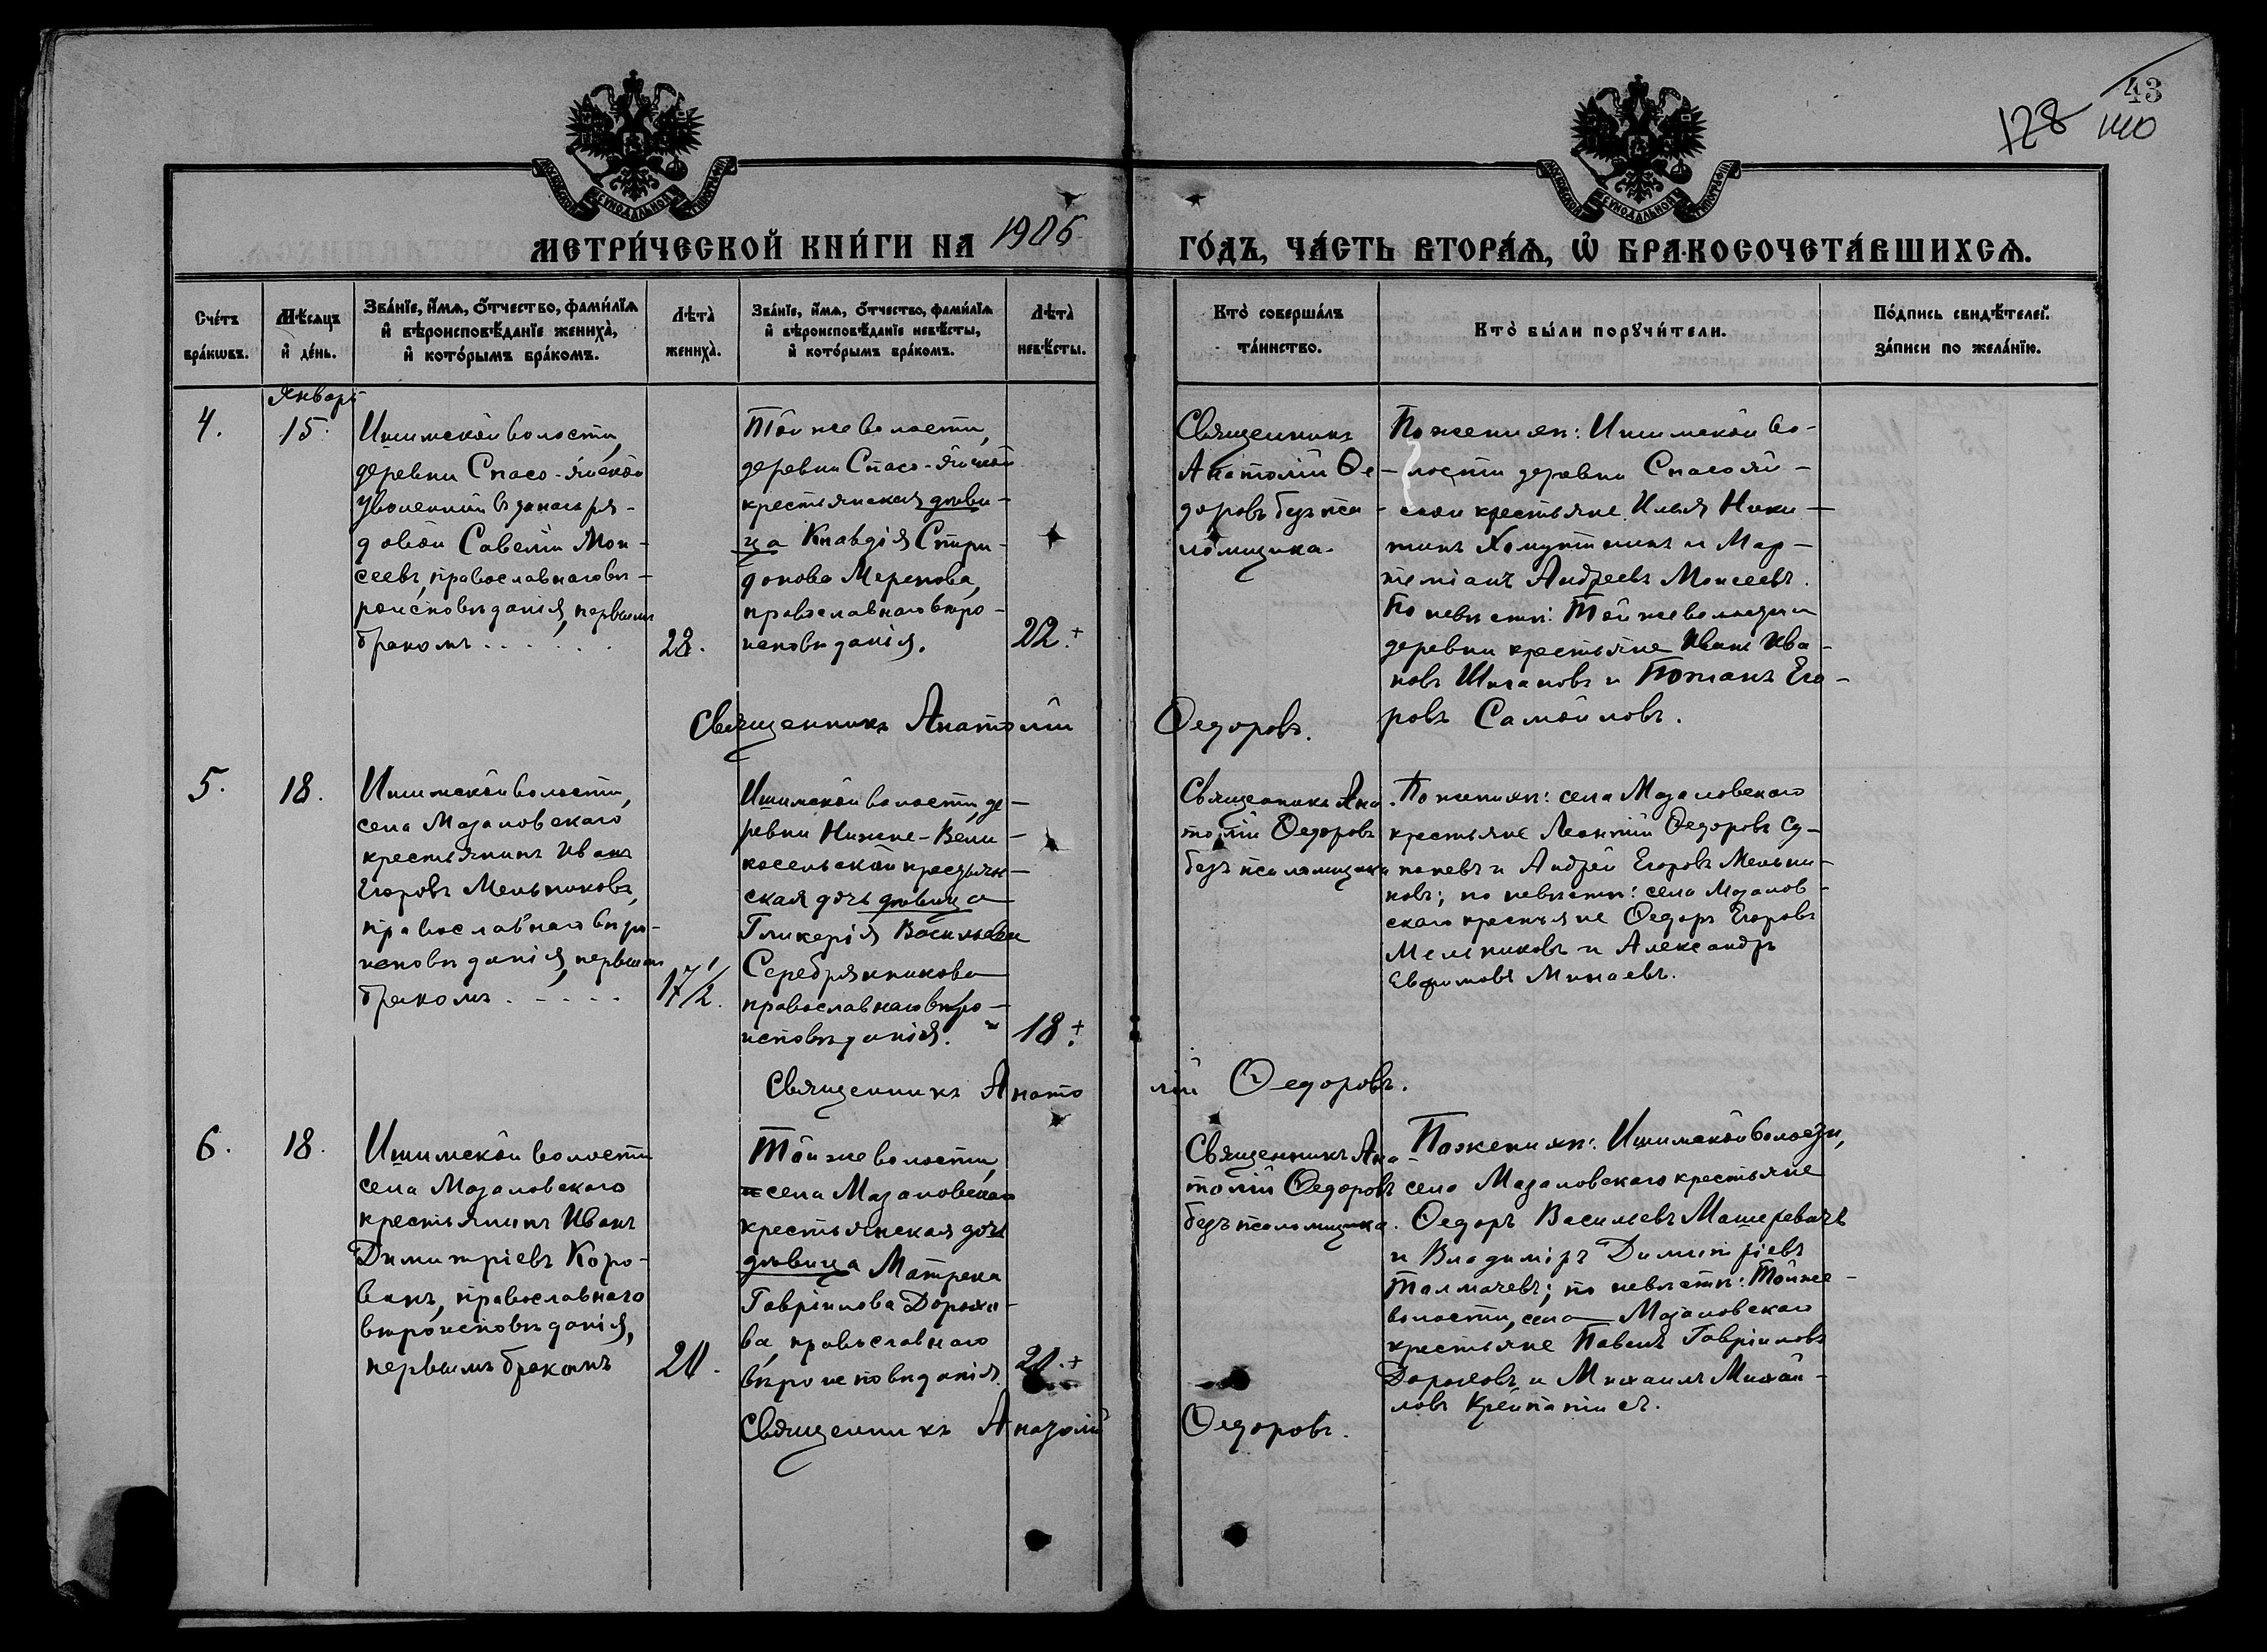 43
128 140
МОСКОВСКОЙ СѴНОДАЛЬНОЙ ТИПОГРАФІИ
МОСКОВСКОЙ СѴНОДАЛЬНОЙ ТИПОГРАФІИ
МЕТРИ́ЧЕСКОЙ КНИ́ГИ НА 1906 ГО́ДЪ, ЧА́СТЬ ВТОРА́Ѧ, Ѽ БРАКОСОЧЕТА́ВШИХСѦ.
Сче́тъ бра́кѡвъ.
Мѣ́сѧцъ и҆ де́нь.
Зва́нїе, и҆́мѧ, ѻ҆́тчество, фами́лїѧ и҆ вѣроисповѣ́данїе жениха̀, и҆ кото́рымъ бра́комъ.
Лѣта̀ жениха̀.
Зва́нїе, и҆́мѧ, ѻ҆́тчество, фами́лїѧ и҆ вѣроисповѣ́данїе невѣ́сты, и҆ кото́рымъ бра́комъ.
Лѣта̀ невѣ́сты.
Кто̀ соверша́лъ та́инство.
Кто̀ бы́ли порꙋчи́тели.
По́дпись свидѣ́телей за́писи по жела́нїю.
4.
Январь
15.
Ишимской волости,
деревни Спасо-Яйской
уволенный въ запасъ ря-
довой Савелій Мои-
сеевъ, православнаго вѣ-
роисповѣданія, первымъ
бракомъ . . . . . .
28.
Той же волости,
деревни Спасо-Яйской
крестьянская дѣви-
ца Клавдія Спири-
донова Меренова,
православнаго вѣро-
исповѣданія.
22.+
Священникъ
Анатолій Ѳе-
доровъ безъ пса-
ломщика.
По женихѣ: Ишимской во-
лости деревни Спасояй-
ской крестьяне Илья Ники-
тинъ Хомутинъ и Мар-
тиніанъ Андреевъ Моисеевъ.
По невѣстѣ: Той же волости и
деревни крестьяне Иванъ Ива-
новъ Шигаповъ и Романъ Его-
ровъ Самойловъ.
Священникъ Анатолій Ѳедоровъ.
5.
18.
Ишимской волости,
села Мазаловскаго
крестьянинъ Иванъ
Егоровъ Мельниковъ,
православнаго вѣро-
исповѣданія, первымъ
бракомъ . - . . .
17 1/2.
Ишимской волости, де-
ревни Нижне-Вели-
косельской крестьян-
ская дочь дѣвица
Гликерія Васильева
Серебрянникова
православнаго вѣро-
исповѣданія.
18.+
Священникъ Ана-
толій Ѳедоровъ
безъ псаломщика
По женихѣ: села Мазаловскаго
крестьяне Леонтій Ѳедоровъ Су-
паневъ и Андрей Егоровъ Мельни-
ковъ; по невѣстѣ: села Мазалов-
скаго крестьяне Ѳедоръ Егоровъ
Мельниковъ и Александръ
Евфимовъ Минаевъ.
Священникъ Анатолій Ѳедоровъ.
6.
18.
Ишимской волости
села Мазаловскаго
крестьянинъ Иванъ
Димитріевъ Коро-
ванъ, православнаго
вѣроисповѣданія,
первымъ бракомъ
20.
Той же волости,
села Мазаловскаго
крестьянская дочь
дѣвица Матрена
Гавріилова Дорохо-
ва, православнаго
вѣроисповѣданія.
20.+
Священникъ Ана-
толій Ѳедоровъ
безъ псаломщика.
По женихѣ: Ишимской волости,
села Мазаловскаго крестьяне
Ѳедоръ Васильевъ Мацеревичъ
и Владиміръ Димитріевъ
Толмачевъ; по невѣстѣ: Той же
волости, села Мазаловскаго
крестьяне Павелъ Гавріиловъ
Дороховъ и Михаилъ Михай-
ловъ
Священникъ Анатолій Ѳедоровъ.